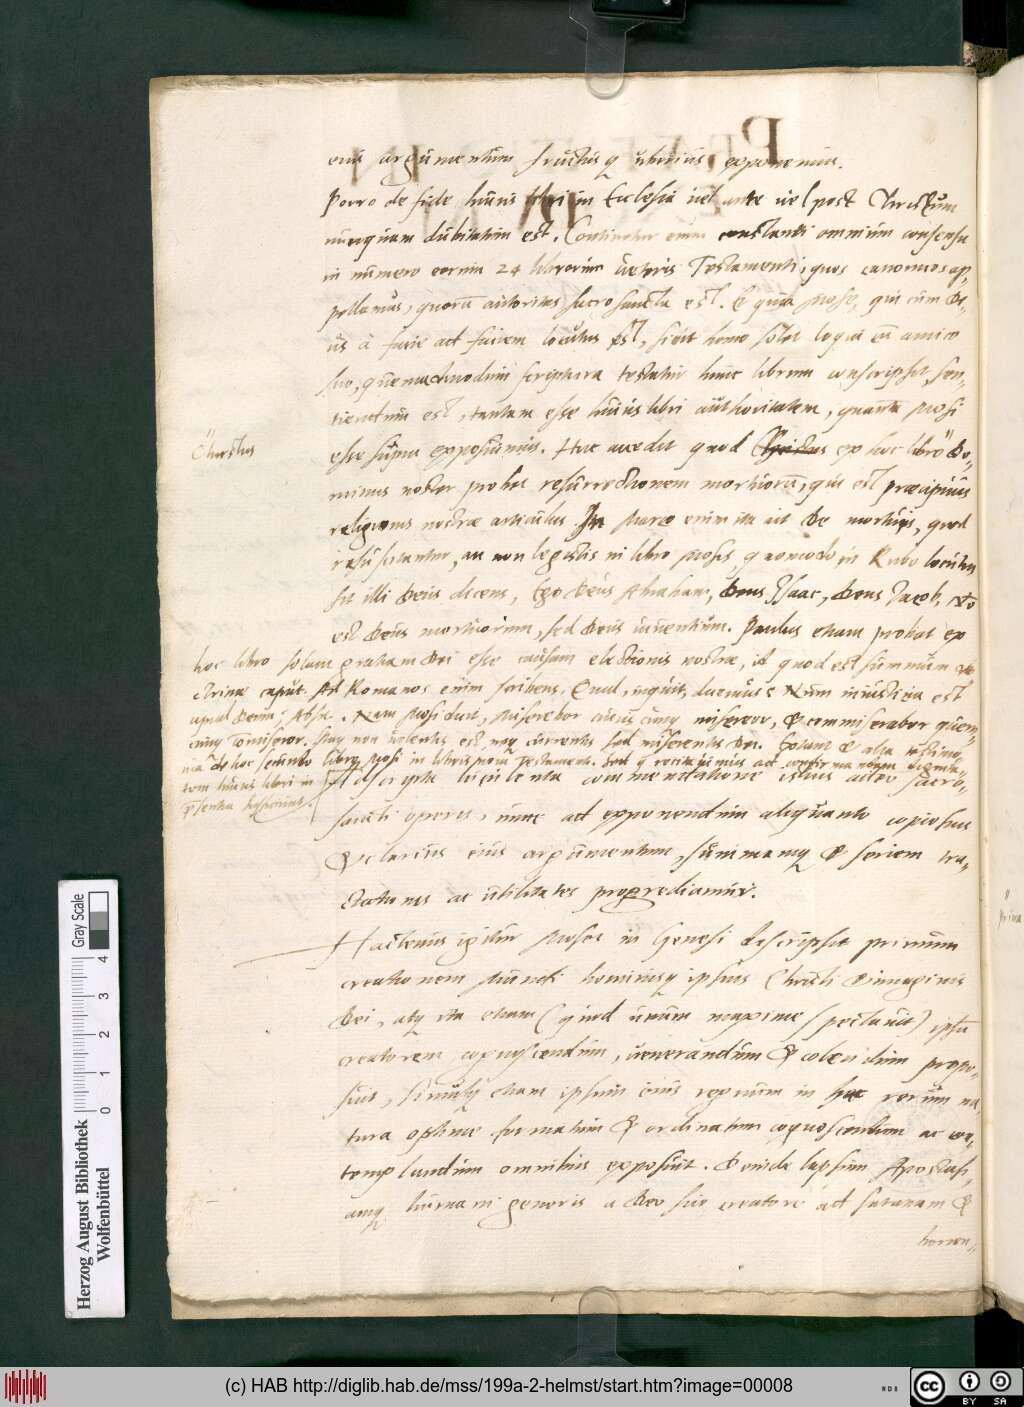 eius argumentum fructusq uberius exponemus.
Porro de fide huius libri in Ecclesia uel ante uel post Christum
nunquam dubitatum est. Continetur enim constanti omnium consensu
in numero eorum 24 librorum ueteris Testamenti, quos canonicos ap„
pellamus, quorū autoritas sacrosancta est. Et quia Mose, qui cum De„
us à facie ad faciem locutus est, sicut homo solet loqui cū amico
suo, quemadmodum scriptura testatur hunc librum conscripsit, sen„
tiendum est, tantam esse huius libri authoritatem, quanta Mosi
Christus
esse supra exposuimus. Huc accedit quod Christus ex hoc libro Do„
minus noster probet resurrectionem mortuorū, qui est præcipuus
religionis nostræ articulus. In Marco enim ita ait De mortuis, quod
resuscitantur, an non legistis in libro Mosis, quomodo in Rubo locutus
sit illi Deus dicens, Ego Deus Abraham, Deus Isaac, Deus Jacob, Nō
est Deus mortuorum, sed Deus uiuentium. Paulus etiam probat ex
hoc libro solam gratiam Dei esse causam electionis nostræ, id quod est summum do
ctrinæ caput. Ad Romanos enim scribens, Quid, inquit, dicemus? Num iniustitia est
apud Deum? Absit. Nam Mosi dicit, Miserebor cuiuscunq misereor, & commiserabor quem„
cunq Comiseror. Itaq non uolentis est neq currentis sed miserentis Dei. Extant & alia testimo„
nia de hoc secundo libro Mosi in libris noui Testamenti. Sed q recitauimus ad confirmandam dignita„
tem huius libri in
p̄sentia sufficiunt.
Ascripta luculenta commendatione istius adeo sacro„
sancti operis, nunc ad exponendum aliquanto copiosius
& clarius eius argumentum, summamq & seriem tra„
ctationis ac utilitates progrediamur.
Hactenus igitur Moses in Genesi descripsit primum
creationem Mundi hominisq ipsius Christi & imaginis
Dei, atq ita etiam (quod unum maxime spectauit) ipsū
creatorem cognoscendum, uenerandum & colendum propo„
suit, simulq etiam ipsum eius regnum in hac rerum na„
tura optime formatum & ordinatum cognoscendum ac con„
templandum omnibus exposuit. Deinde lapsum Apostasi„
amq humani generis a Deo suo creatore ad satanam &
horren„
prima
Herzog August Bibliothek
Wolfenbüttel
0 1 2 3 4
Gray Scale
(c) HAB http://diglib.hab.de/mss/199a-2-helmst/start.htm?image=00008
cc BY SA